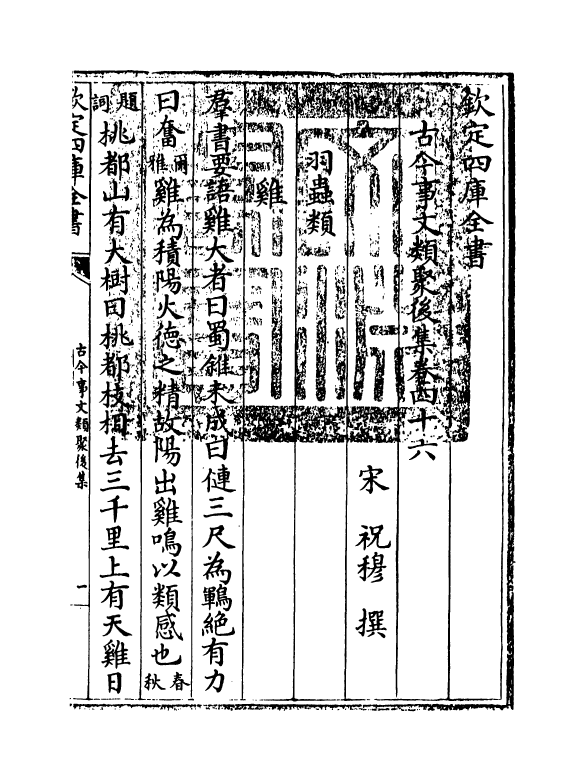 欽定四庫全書
古今事文類聚後集卷四十六
宋 祝穆 撰
羽蟲類
雞
羣書要語雞大者曰蜀雒未成曰僆三尺為鶤絶有力
曰奮爾雅雞為積陽火德之精故陽出雞鳴以類感也春秋
題詞桃都山有大樹曰桃都枝相去三千里上有天雞日
欽定四庫全書
古今事文類聚後集
一